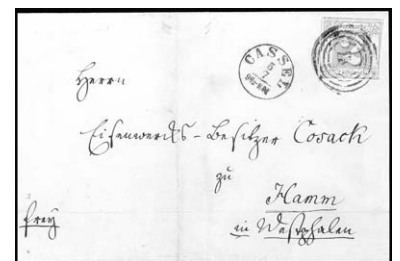 CASSEL
5
7
Herrn
Eisenwerks-Besitzer Cosack
zu
Hamm
frey
in Westphalen